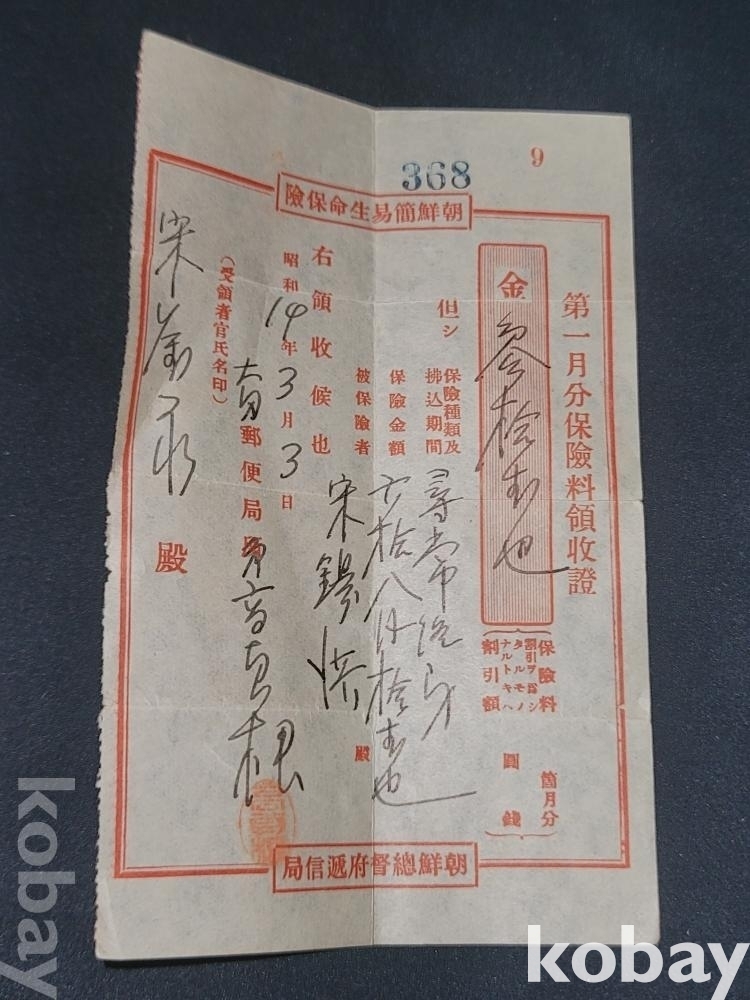 368
9
朝鮮簡易生命保險
第一月分保險料領收證
金 參拾錢也
保險料
割引ヲ爲シ
タルモノ
ナルトキハ
割引額
箇月分
圓 錢
但シ
保險種類及
拂込期間
尋常終身
保險金額
六拾八円拾錢也
被保險者
宋錫 殿
右領收候也
昭和14年3月3日
郵便局
(受領者官氏名印)
宋 殿
朝鮮總督府遞信局
kobay
kobay